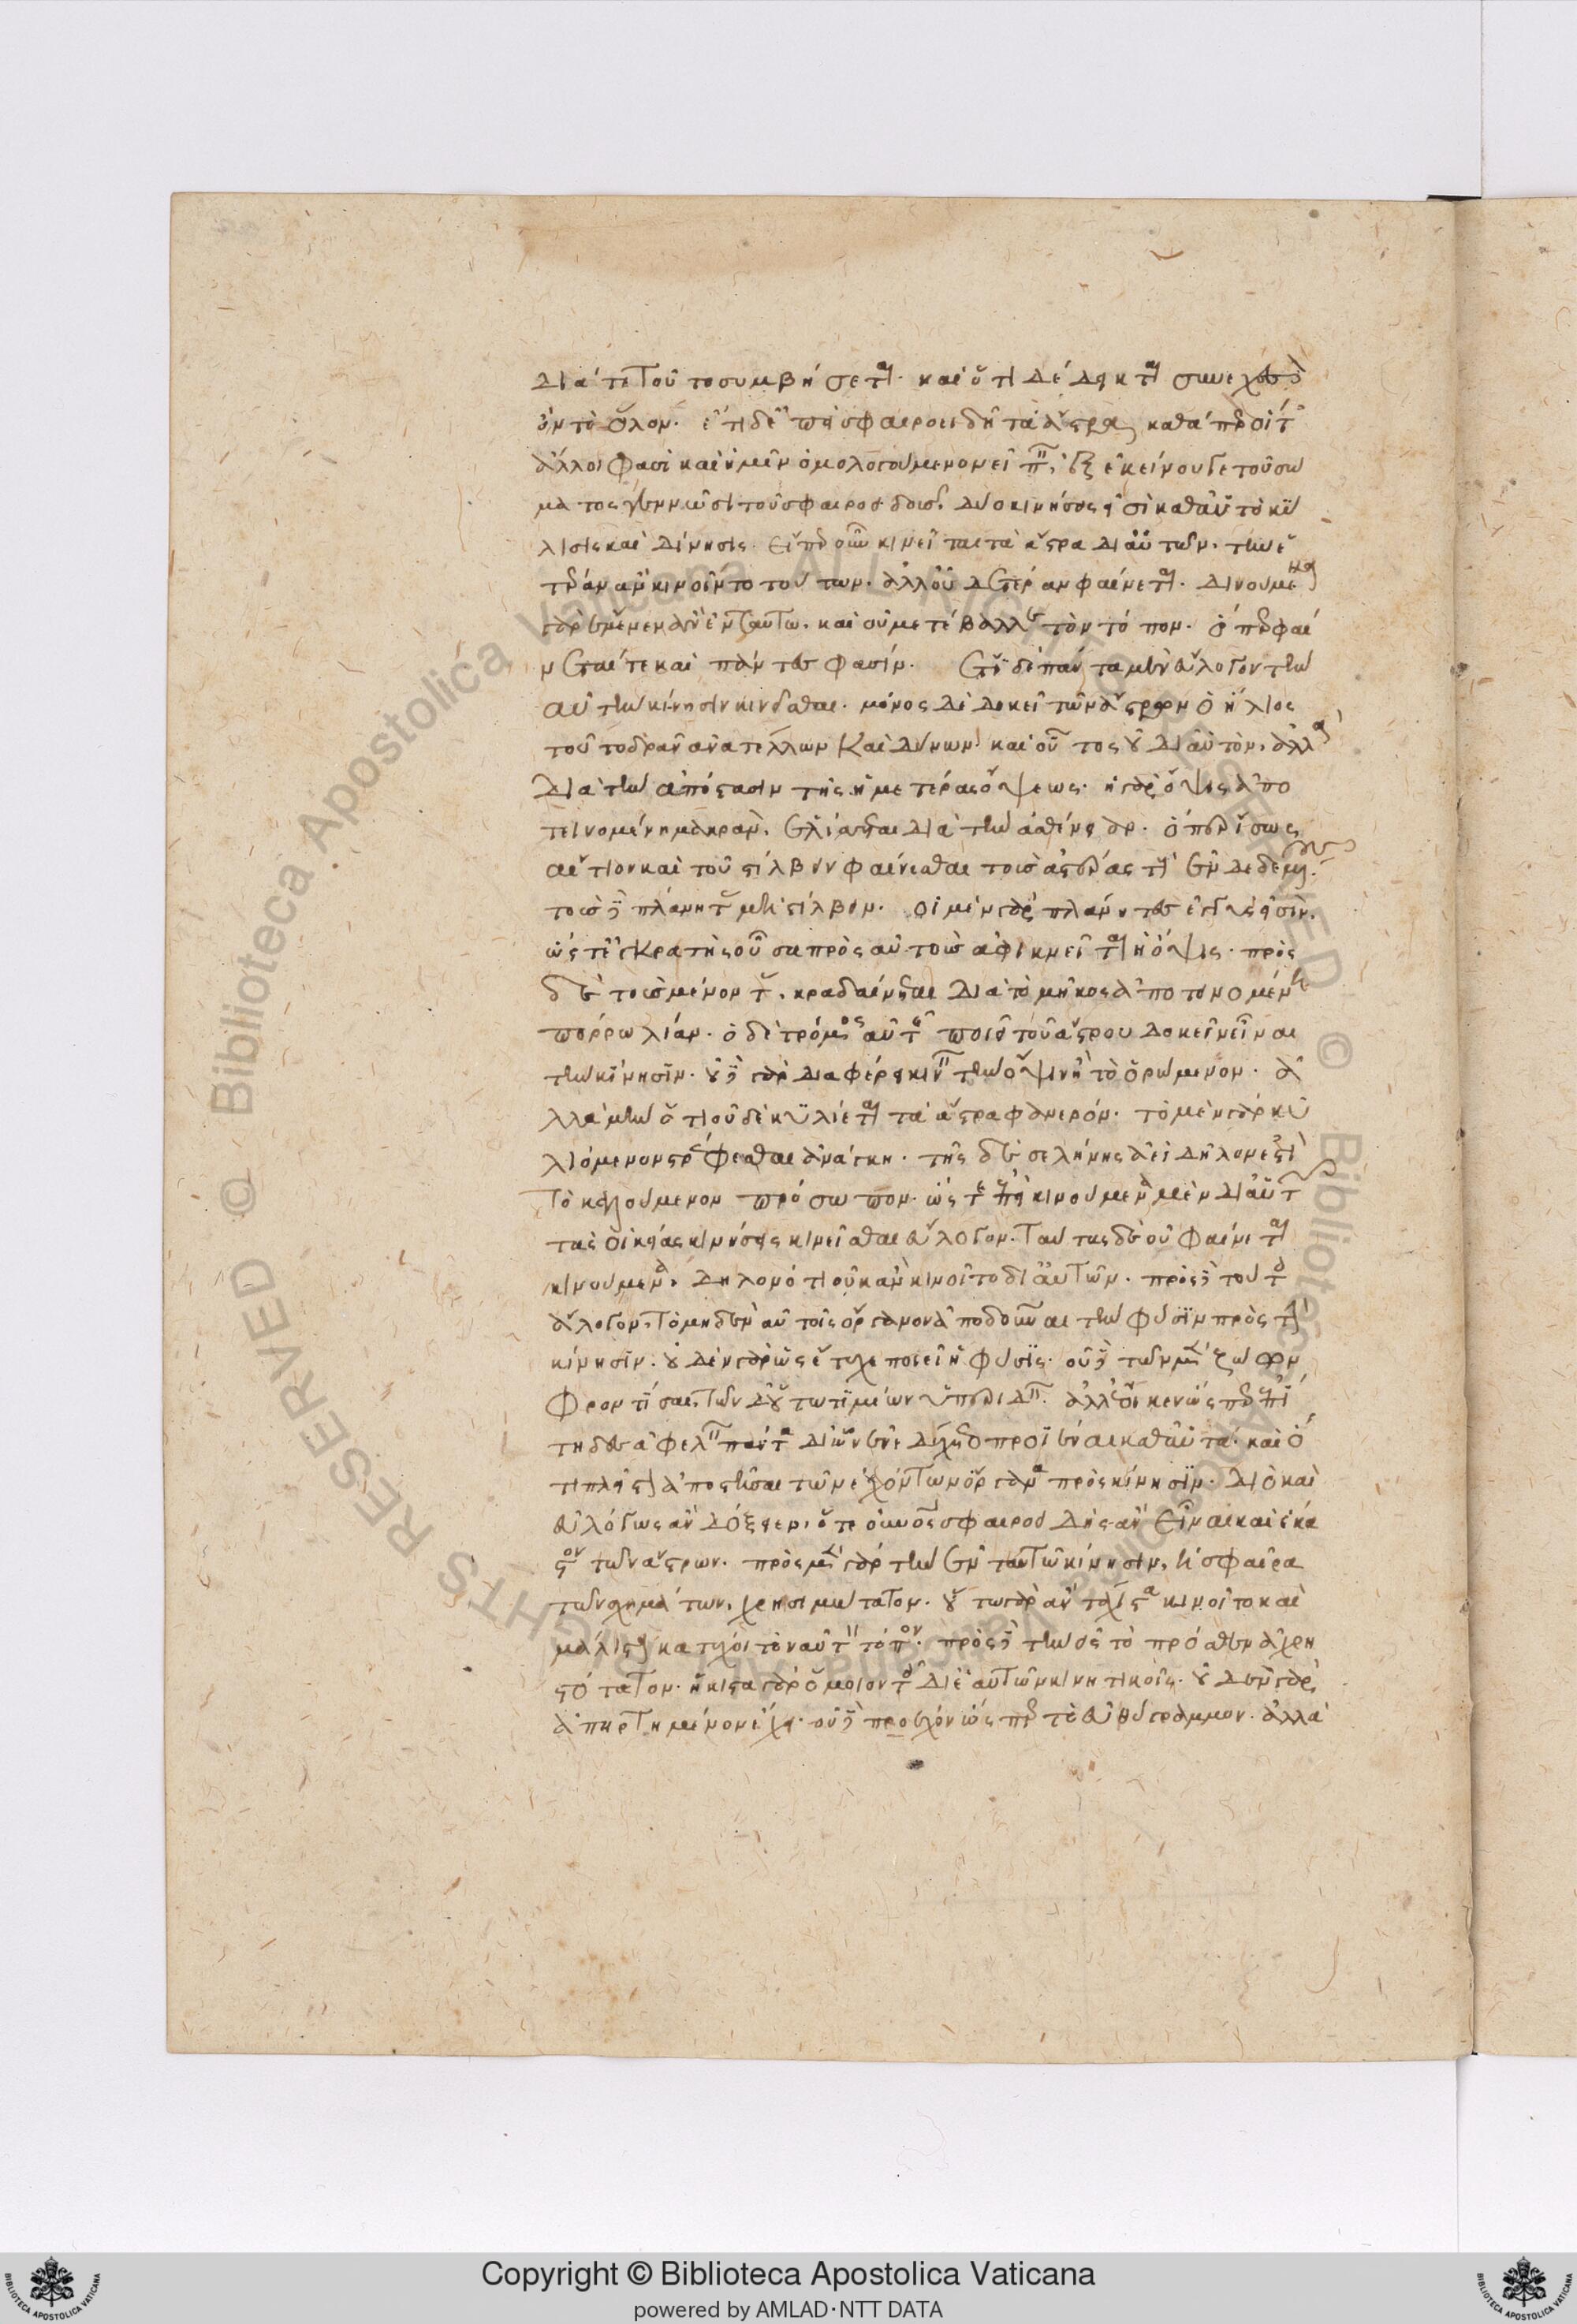 διά τε τοῦτο συμβήσεται. καὶ ὅτι δέδεικται συνεχὲς
ὂν τὸ ὅλον. ἔτι δ' ἐπεὶ σφαιροειδῆ τὰ ἄστρα, καθάπερ οἵ τ'
ἄλλοι φασὶ καὶ ἡμῖν ὁμολογούμενον εἰπεῖν, ἐξ ἐκείνου γε τοῦ σώ
ματος γεννῶσι τοῦ σφαιροειδοῦς. δύο κινήσεις εἰσὶ καθ' αὑτὸ κύ
λισις καὶ δίνησις. εἴπερ οὖν κινεῖται τὰ ἄστρα δι' αὑτῶν. τὴν ἑ
τέραν ἂν κινοῖντο τούτων. ἀλλ' οὐδετέραν φαίνεται. δινούμενα
γὰρ ἔμενεν ἂν ἐν ταὐτῷ. καὶ οὐ μετέβαλλε τὸν τόπον. ὅπερ φαί
νεταί τε καὶ πάντες φασίν. ἔτι δὲ πάντα μὲν εὔλογον τὴν
αὐτὴν κίνησιν κινεῖσθαι. μόνος δὲ δοκεῖ τῶν ἄστρων ὁ ἥλιος
τοῦτο δρᾶν ἀνατέλλων καὶ δύνων καὶ οὗτος οὐ δι' αὑτόν. ἀλλὰ
διὰ τὴν ἀπόστασιν τῆς ἡμετέρας ὄψεως. ἡ γὰρ ὄψις ἀπο
τεινομένη μακρὰν, ἑλίσσεται διὰ τὴν ἀσθένειαν. ὅπερ ἴσως
αἴτιον καὶ τοῦ στίλβειν φαίνεσθαι τοὺς ἀστέρας τοὺς ἐνδεδεμένους.
τοὺς δὲ πλάνητας μὴ στίλβειν. οἱ μὲν γὰρ πλάνητες ἐγγύς εἰσιν.
ὥστ' ἐγκρατὴς οὖσα πρὸς αὐτοὺς ἀφικνεῖται ἡ ὄψις. πρὸς
δὲ τοὺς μένοντας. κραδαίνεται διὰ τὸ μῆκος ἀποτεινομένη
πόρρω λίαν. ὁ δὲ τρόμος αὐτῆς ποιεῖ τοῦ ἄστρου δοκεῖν εἶναι
τὴν κίνησιν. οὐδὲν γὰρ διαφέρει κινεῖν τὴν ὄψιν ἢ τὸ ὁρώμενον. ἀ
λλὰ μὴν ὅτι οὐδὲ κυλίεται τὰ ἄστρα φανερόν. τὸ μὲν γὰρ κυ
λιόμενον στρέφεσθαι ἀνάγκη. τῆς δὲ σελήνης ἀεὶ δῆλόν ἐστι
τὸ καλούμενον πρόσωπον. ὥστ' ἐπεὶ κινούμενα μὲν δι' αὑτῶν
τὰς οἰκείας κινήσεις κινεῖσθαι εὔλογον. ταύτας δὲ οὐ φαίνεται
κινούμενα. δῆλον ὅτι οὐκ ἂν κινοῖτο δι' αὑτῶν. πρὸς δὲ τούτοις
ἄλογον, τὸ μηδὲν αὐτοῖς ὄργανον ἀποδοῦναι τὴν φύσιν πρὸς τὴν
κίνησιν. οὐδὲν γὰρ ὡς ἔτυχε ποιεῖ ἡ φύσις. οὐδὲ τῶν μὲν ζώων
φροντίσαι, τῶν δ' οὕτω τιμίων ὑπεριδεῖν. ἀλλ' ἔοικεν ὥσπερ ἐπί
τηδες ἀφελεῖν πάντα δι' ὧν ἐνεδέχετο προϊέναι καθ' αὑτά. καὶ ὅ
τι πλεῖστον ἀποστῆσαι τῶν ἐχόντων ὄργανα πρὸς κίνησιν. διὸ καὶ
εὐλόγως ἂν δόξειεν, ὅ τε οὐρανὸς σφαιροειδὴς ἂν εἶναι καὶ ἕκα
στον τῶν ἄστρων. πρὸς μὲν γὰρ τὴν ἐν ταὐτῷ κίνησιν, ἡ σφαῖρα
τῶν σχημάτων, χρησιμώτατον. οὕτω γὰρ ἂν τάχιστα κινοῖτο καὶ
μάλιστα κατέχοι τὸν αὐτὸν τόπον. πρὸς δὲ τὴν εἰς τὸ πρόσθεν ἀχρη
στότατον. ἥκιστα γὰρ ὅμοιον τοῖς δι' ἑαυτῶν κινητικοῖς. οὐδὲν γὰρ
ἀπηρτημένον ἔχει. οὐδὲ προέχον ὥσπερ τὸ εὐθύγραμμον. ἀλλὰ